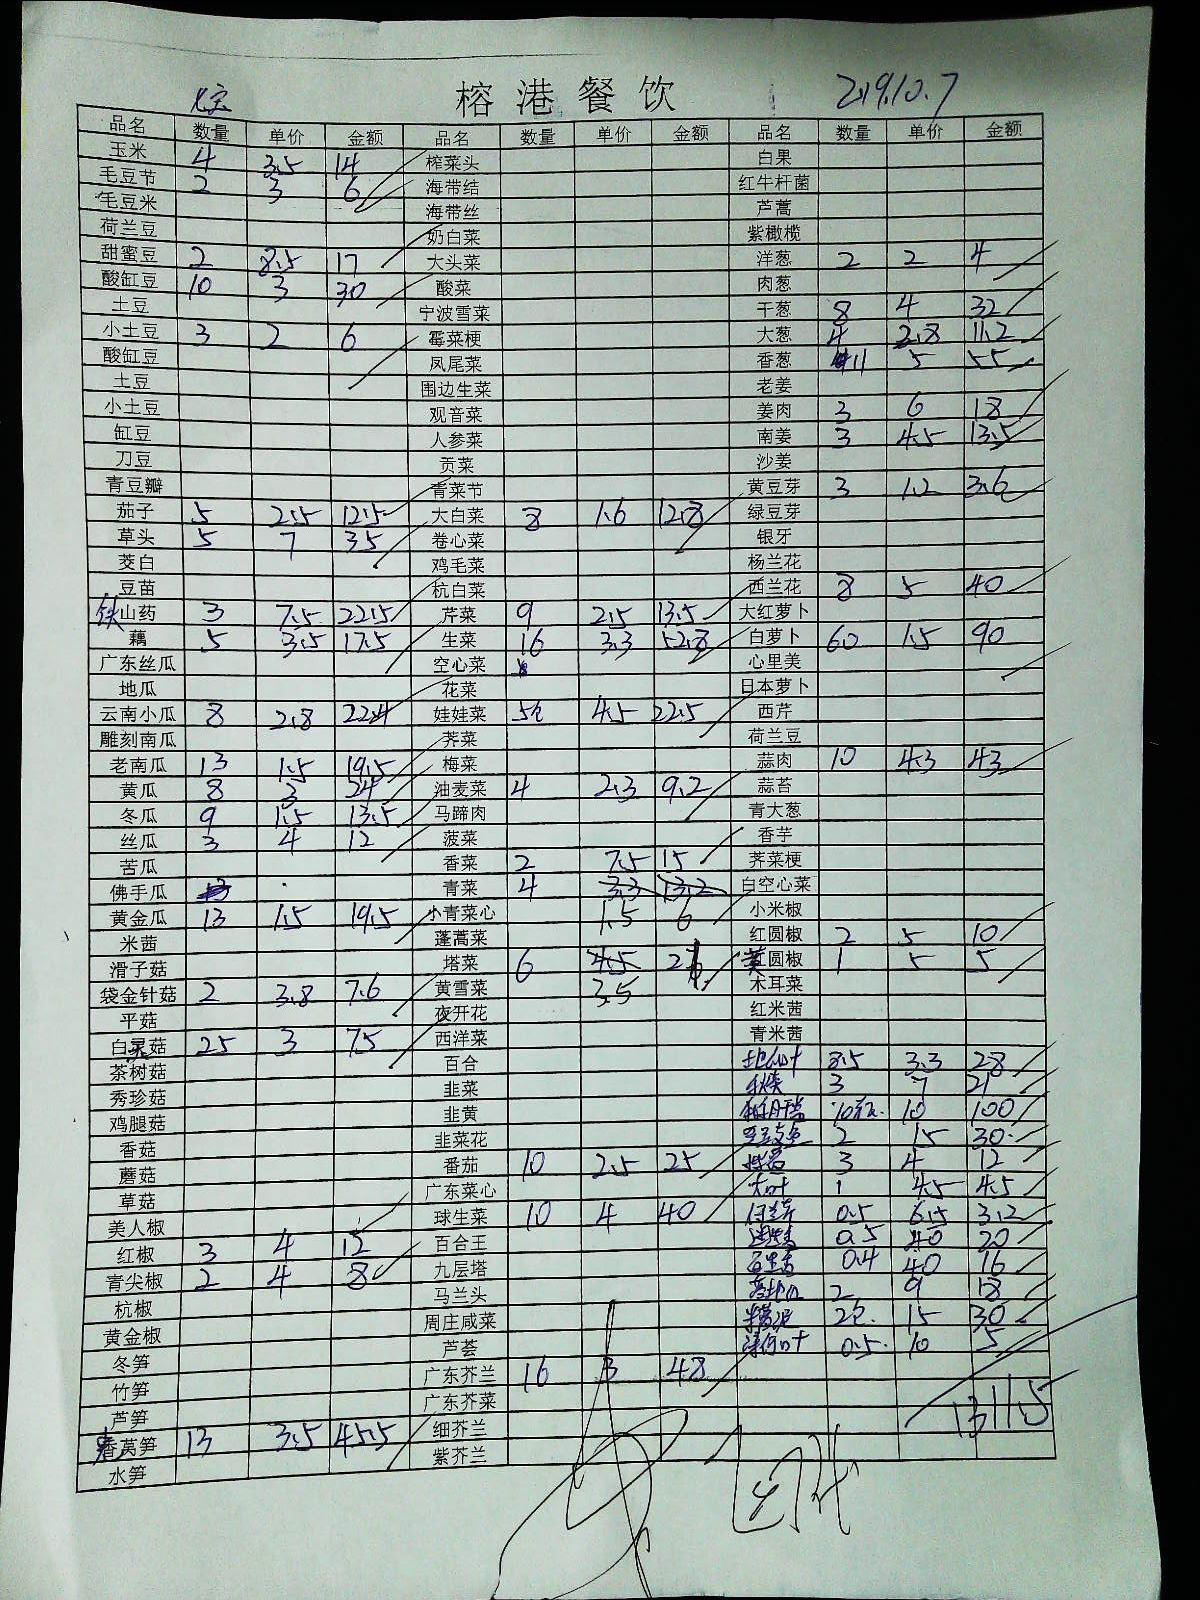 榕港餐饮 2019.10.7
品名 数量 单价 金额 品名 数量 单价 金额 品名 数量 单价 金额
玉米 4 3.5 14 榨菜头 白果
毛豆节 2 3 6 海带结 红牛杆菌
毛豆米 海带丝 芦蒿
荷兰豆 奶白菜 紫橄榄
甜蜜豆 2 8.5 17 大头菜 洋葱 2 2 4
酸缸豆 10 3 30 酸菜 肉葱
土豆 宁波雪菜 干葱 8 4 32
小土豆 3 2 6 霉菜梗 大葱 4 2.8 11.2
酸缸豆 凤尾菜 香葱 11 5 55
土豆 围边生菜 老姜
小土豆 观音菜 姜肉 3 6 18
缸豆 人参菜 南姜 3 4.5 13.5
刀豆 贡菜 沙姜
青豆瓣 青菜节 黄豆芽 3 1.2 3.6
茄子 5 2.5 12.5 大白菜 8 1.6 12.8 绿豆芽
草头 5 7 35 卷心菜 银牙
茭白 鸡毛菜 杨兰花
豆苗 杭白菜 西兰花 8 5 40
铁山药 3 7.5 22.5 芹菜 9 2.5 13.5 大红萝卜
藕 5 3.5 17.5 生菜 16 3.3 52.8 白萝卜 60 1.5 90
广东丝瓜 空心菜 心里美
地瓜 花菜 日本萝卜
云南小瓜 8 2.8 22.4 娃娃菜 5包 4.5 22.5 西芹
雕刻南瓜 荠菜 荷兰豆
老南瓜 13 1.5 19.5 梅菜 蒜肉 10 4.3 43
黄瓜 8 3 24 油麦菜 4 2.3 9.2 蒜苔
冬瓜 9 1.5 13.5 马蹄肉 青大葱
丝瓜 3 4 12 菠菜 香芋
苦瓜 香菜 2 7.5 15 荠菜梗
佛手瓜 13 青菜 4 3.3 13.2 白空心菜
黄金瓜 13 1.5 19.5 小青菜心 1.5 6 小米椒
米茜 蓬蒿菜 红圆椒 2 5 10
滑子菇 塔菜 6 4.5 21 黄圆椒 1 5 5
袋金针菇 2 3.8 7.6 黄雪菜 3.5 木耳菜
平菇 夜开花 红米茜
白灵菇 25 3 75 西洋菜 青米茜
茶树菇 百合 8.5 3.3 28
秀珍菇 韭菜 3 7 21
鸡腿菇 韭黄 10 10 100
香菇 韭菜花 2 15 30
蘑菇 番茄 10 2.5 25 3 4 12
草菇 广东菜心 大叶 1 4.5 4.5
美人椒 球生菜 10 4 40 0.5 6.5 3.2
红椒 3 4 12 百合王 0.5 40 20
青尖椒 2 4 8 九层塔 0.4 40 16
杭椒 马兰头 2 9 18
黄金椒 周庄咸菜 2包 15 30
冬笋 芦荟 薄荷叶 0.5 10 5
竹笋 广东芥兰 16 3 48
芦笋 广东芥菜
香莴笋 13 3.5 45.5 细芥兰 1311.5
水笋 紫芥兰